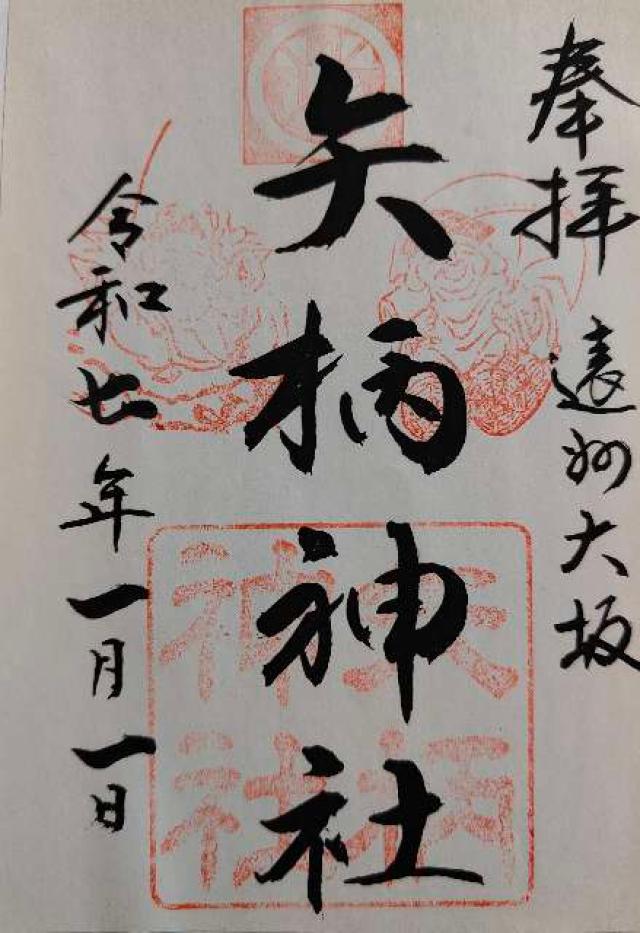 奉拝 遠州大坂
矢柄神社
令和七年一月一日
矢柄
神社